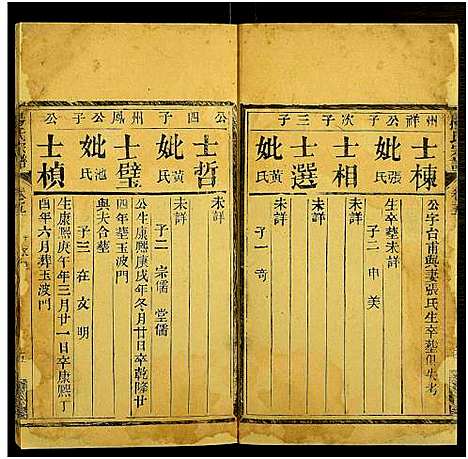 州祥公子次子三子
士棟
公字台甫與妻張氏生卒塟俱失考
妣張氏
生卒塟未詳
子二 申 美
士相
未詳
士選
妣黃氏
未詳
子一 奇
公四子州鳳公子
士哲
未詳
妣黃氏
子二 宗儒 堂儒
士璧
公生康熙庚戌年冬月廿日卒乾隆廿四年塟玉波門
妣池氏
與夫合塟
子三 在 文 明
士楨
生康熙庚午年三月廿一日卒康熙丁酉年六月葬玉波門